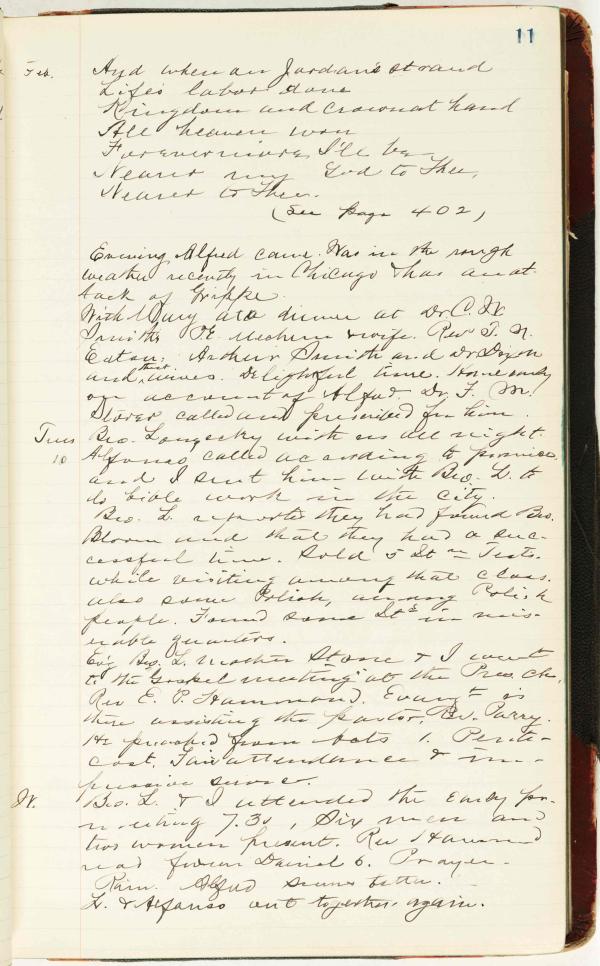 11
Feb. And when on Jordan's strand
Life's labor done
Kingdom and crown at hand
All heaven won
Forevermore, I'll be
Nearer my God to Thee,
Nearer to Thee.
(See page 402)
Evening Alfred came. Was in the rough
weather recently in Chicago & has an at-
tack of Grippe.
With Mary at a dinner at Dr. C. W.
Smith's P.E. & wife. Rev. T. N.
Eaton, Arthur Smith and Dr. Dixon
and their wives. Delightful time. Home early
on account of Alfred. Dr. F. M.
Storer called and prescribed for him.
Tues Bro. Longecky with us all night.
10 Alfonso called according to promise
and I sent him with Bro. L. to
do bible work in the city.
Bro. L. reports they had found Bro.
Bloom and that they had a suc-
cessful time. Sold 5 Itn Tests.
while visiting among that class.
also some Polish, among Polish
people. Found some Its in mis-
erable quarters.
Ev'g Bro. L. Mother Stone & I went
to the Gospel meeting at the Pres. Ch.
Rev E. P. Hammond. Evangt is
there assisting the pastor, Rev. Parry.
He preached from Acts 1. Pente-
cost. Fair attendance & im-
pressive service.
W. Bro. L. & I attended the early pr.
meeting 7.30, Six men and
two women present. Rev Hammond
read from Daniel 6. Prayer.
Rain. Alfred seems better.
L. & Alfonso out together again.